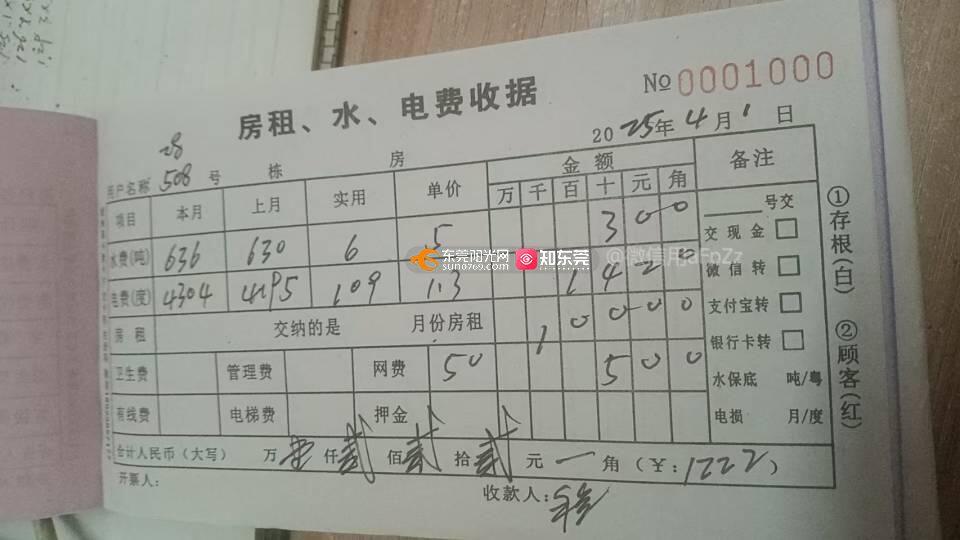 房租、水、电费收据
No 0001000
2025年4月1日
28
用户名称 508 号 栋 房
项目 本月 上月 实用 单价 金额 备注
万 千 百 十 元 角
水费(吨) 636 630 6 5 3 0 0
电费(度) 4304 4195 109 1.3 1 4 2 0
房租 交纳的是 月份房租 1 0 0 0 0
卫生费 管理费 网费 50 5 0 0
有线费 电梯费 押金
号交
交现金 □
微信转 □
支付宝转 □
银行卡转 □
水保底 吨/粤
电损 月/度
合计人民币(大写) 万 壹 仟 贰 佰 贰 拾 贰 元 一 角 (¥: 1222)
开票人: 收款人:
①存根(白) ②顾客(红)
东莞阳光网
sun0769.com
知东莞
@微信用aFnZz